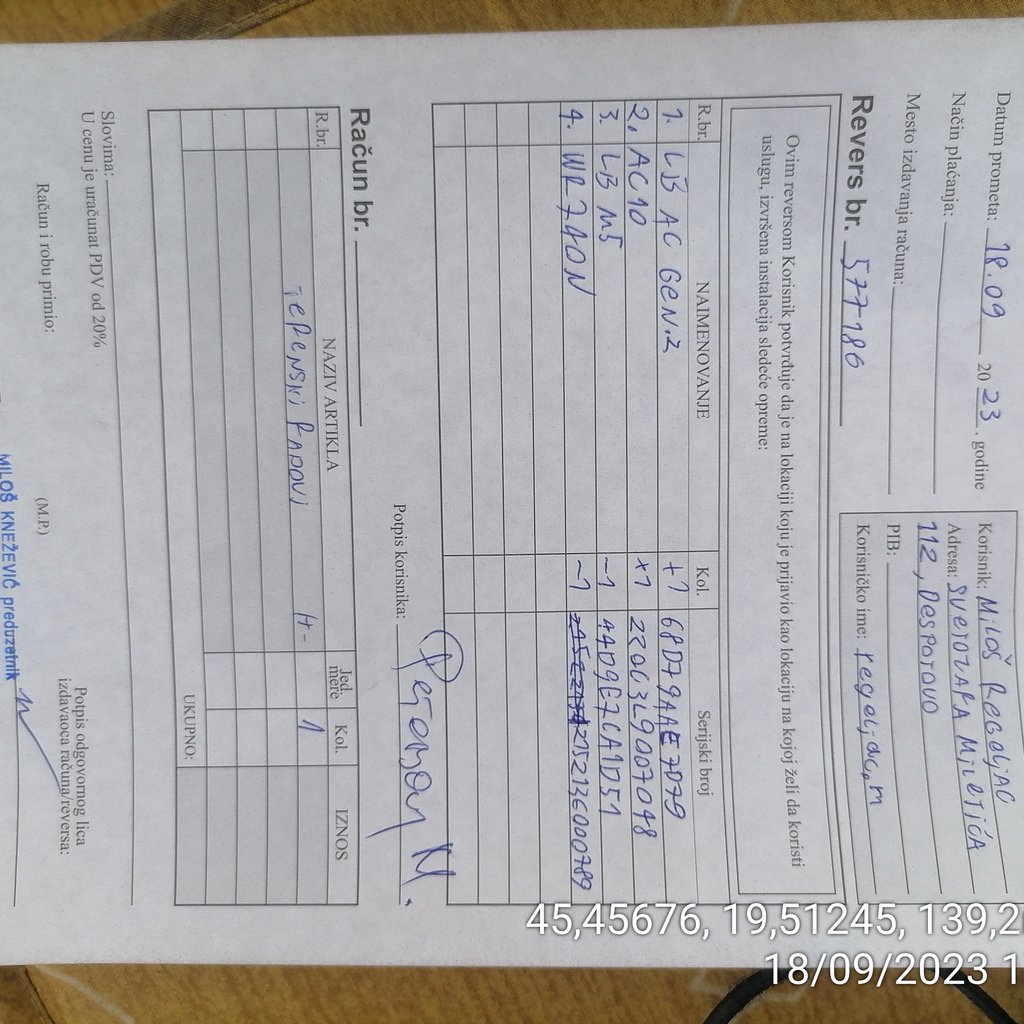 Datum prometa: 18.09 2023. godine
Način plaćanja:
Mesto izdavanja računa:
Korisnik: Miloš Regeljac
Adresa: Svetozara Miletića
112, Despotovo
PIB:
Korisničko ime: regeljac.m
Revers br. 577186
Ovim reversom Korisnik potvrđuje da je na lokaciji koju je prijavio kao lokaciju na kojoj želi da koristi
uslugu, izvršena instalacija sledeće opreme:
R.br. NAIMENOVANJE Kol. Serijski broj
1. LB AC GEN.2 +1 68D79AAE7D79
2. AC10 +1 22063L9007048
3. LB M5 -1 44D9E7CA1D51
4. WR740N -1 2152136000789
Potpis korisnika:
Račun br.
R.br. NAZIV ARTIKLA Jed. mere Kol. IZNOS
TERENSKI RADOVI H- 1
UKUPNO:
Slovima:
U cenu je uračunat PDV od 20%
Račun i robu primio:
(M.P.)
Potpis odgovornog lica
izdavaoca računa/reversa:
MILOŠ KNEŽEVIĆ preduzetnik
45,45676, 19,51245, 139,2
18/09/2023 1